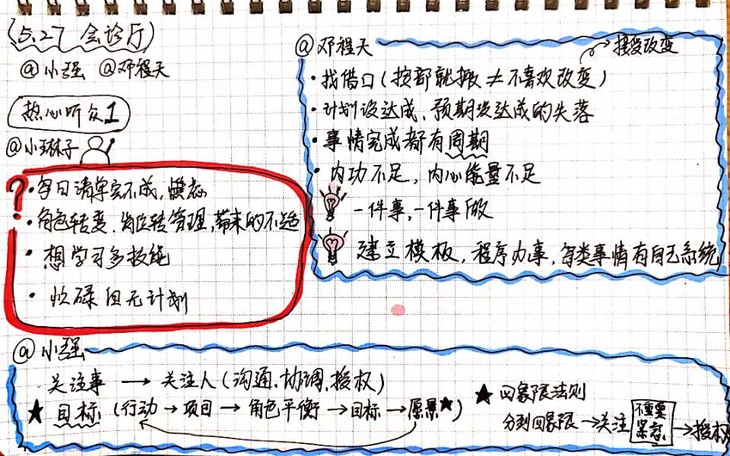 5.27 会诊厅
@小强 @邓程天
热心听众1
@小琳子
?
·每日清单完不成,惯态
·角色转变,岗位转管理,带来的不适
·想学习多技能
·忙碌但无计划
@邓程天
接受改变
·找借口(按部就搬≠不喜欢改变)
·计划没达成,预期没达成的失落
·事情完成都有周期
·内功不足,内心能量不足
一件事,一件事做
建立模板,程序办事,每类事情有自己系统
@小强
关注事→关注人(沟通、协调、授权)
★目标(行动→项目→角色平衡→目标→愿景★)
★四象限法则
分到四象限→关注 不重要 紧急 →授权